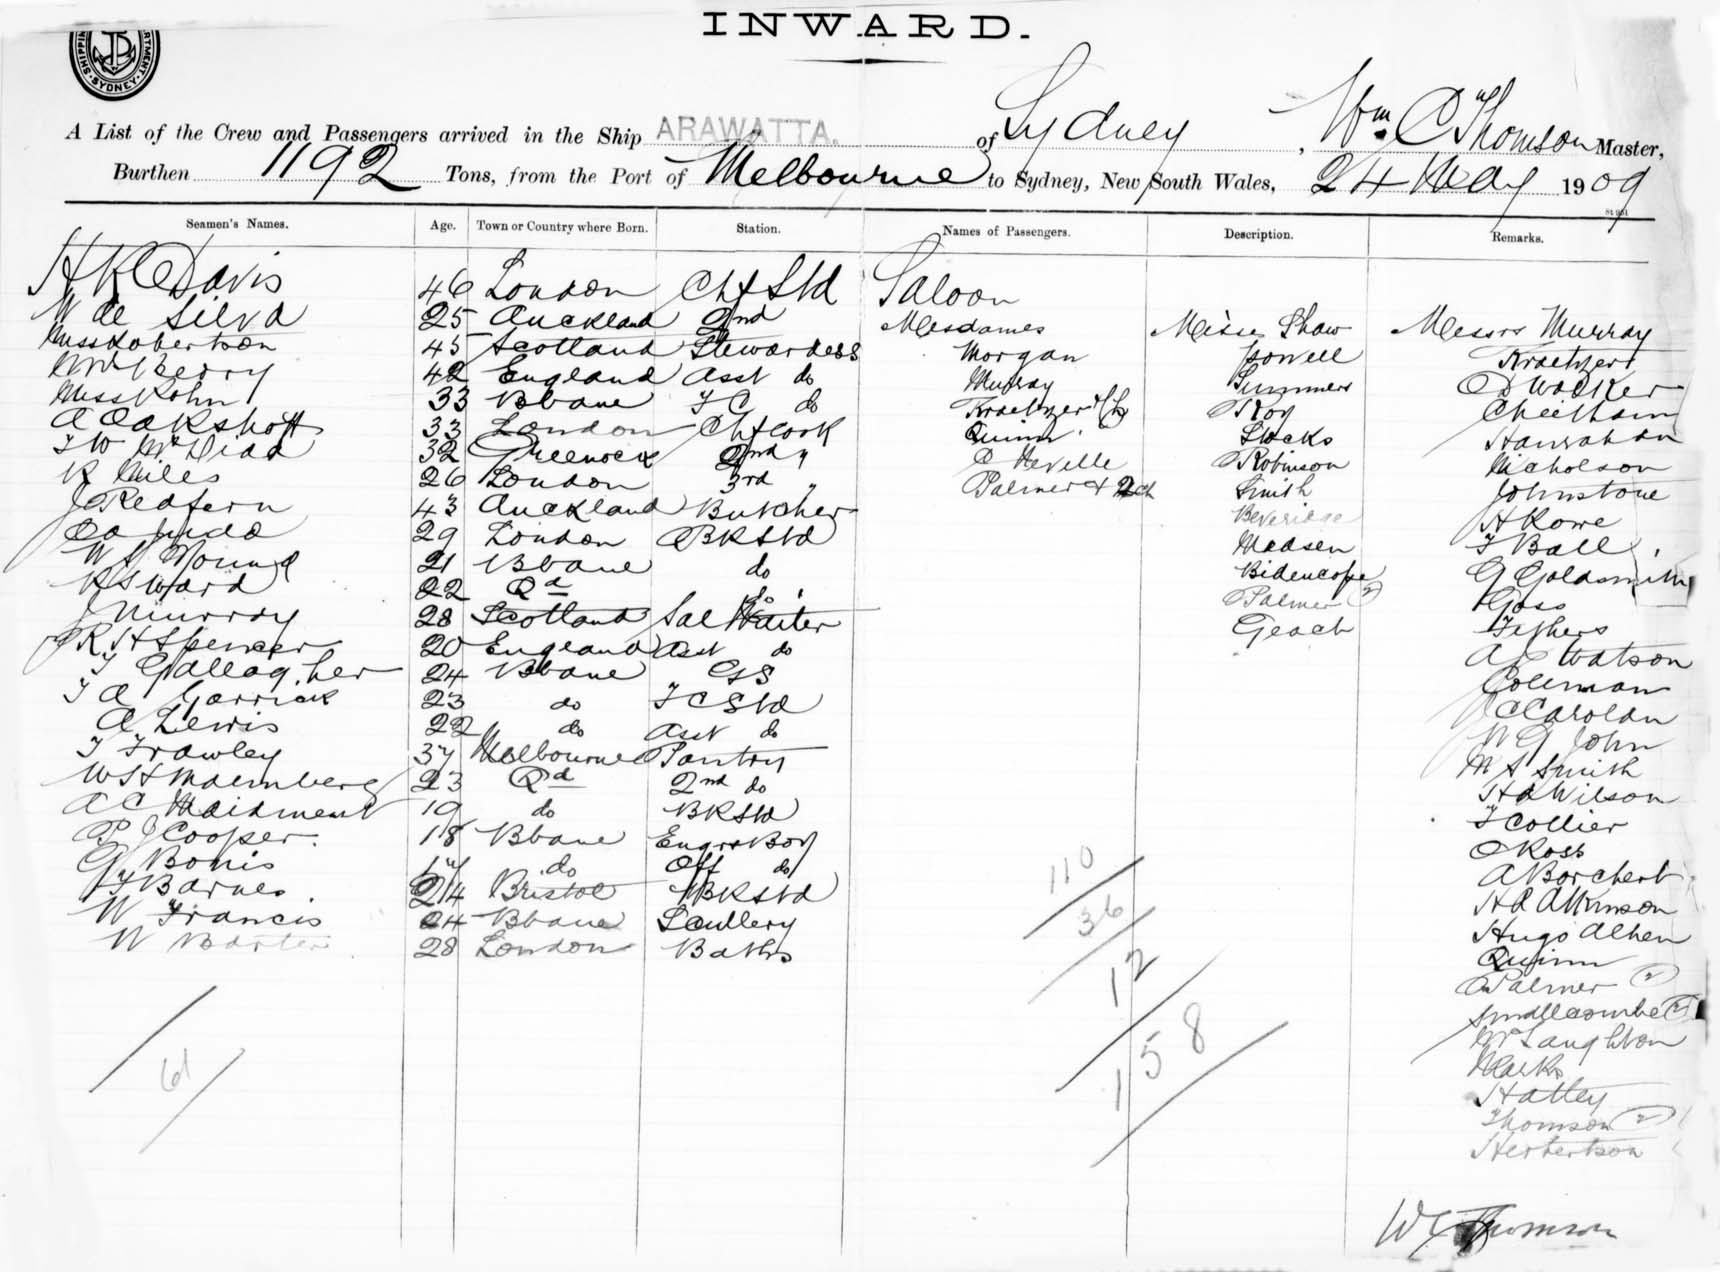 INWARD.
SHIPPING DEPARTMENT SYDNEY
A List of the Crew and Passengers arrived in the Ship ARAWATTA. of Sydney, Wm. C Thomson Master,
Burthen 1192 Tons, from the Port of Melbourne to Sydney, New South Wales, 24 May 1909
Seamen's Names. Age. Town or Country where Born. Station. Names of Passengers. Description. Remarks.
H K Davis 46 London Chf Std Saloon
W de Silva 25 Auckland 2nd Mesdames Misses Shaw Messrs Murray
Miss Robertson 45 Scotland Stewardess Morgan Powell Kraetzer
Mrs Berry 42 England Asst do Murray Summers D Walker
Miss Rohn 33 Bbane F C do Kraetzer Roy Cheetham
A Oakshott 33 London Chf Cook Quinn Stocks Hanrahan
32 Greenock 2nd " C Neville Robinson Nicholson
R Miles 26 London 3rd " Palmer + 2 ch Smith Johnstone
J Redfern 43 Auckland Butcher Beveridge H Rowe
29 London BK Std Madsen T Ball
21 Bbane do Bidencope G Goldsmith
R S Ward 22 Qd do Palmer (2) Goss
J Murray 28 Scotland Sal Waiter Geach
R H Spencer 20 England Asst do A E Watson
T Gallagher 24 Bbane GS Coleman
T A Garrick 23 do F C Std J C Carolan
A Lewis 22 do Asst do W G John
T Frawley 37 Melbourne Pantry M S Smith
W H Malmberg 23 Qd 2nd do H A Wilson
A C Maidment 19 do BK Std T Collier
P J Cooper. 18 Bbane Engrs Boy C Ross
G Bonis 17 do Off do A Borchert
T Barnes. 24 Bristol BK Std H R Atkinson
W Francis 24 Bbane Scullery Hugo Alhen
W Barter 28 London Baths Quinn
Palmer (2)
Smallcombe (2)
McLaughton
Marks
Hatley
Thomson (2)
Herbertson
110
36
12
158
61
W C Thomson